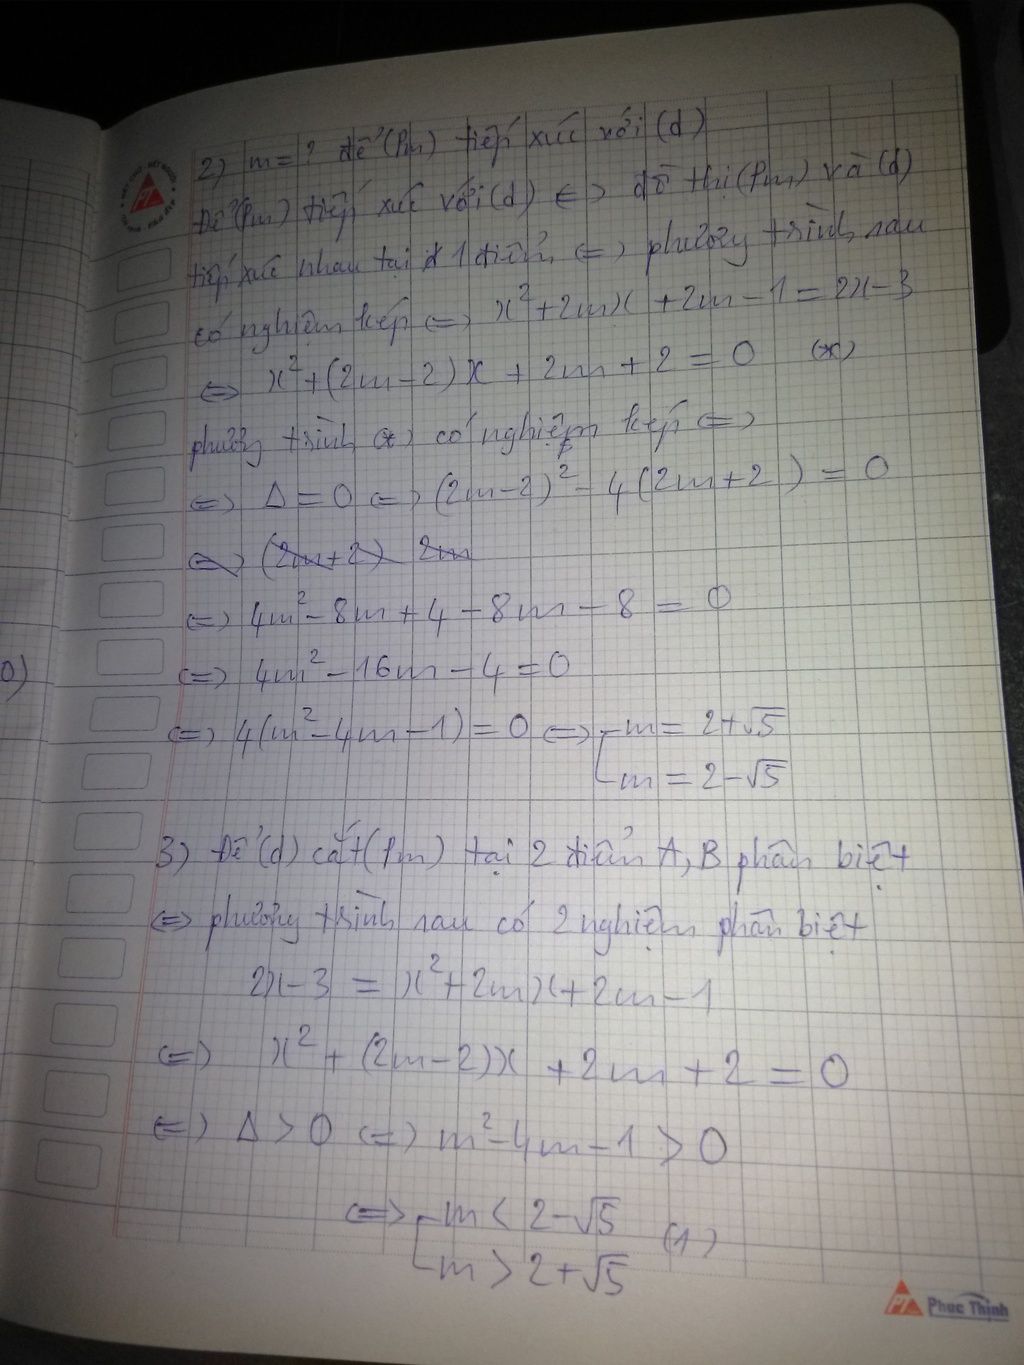 2) m = ? để (Pm) tiếp xúc với (d)
Để (Pm) tiếp xúc với (d) <=> đồ thị (Pm) và (d)
tiếp xúc nhau tại 1 điểm <=> phương trình sau
có nghiệm kép <=> x² + 2mx + 2m - 1 = 2x - 3
<=> x² + (2m - 2)x + 2m + 2 = 0 (*)
phương trình (*) có nghiệm kép <=>
<=> Δ = 0 <=> (2m - 2)² - 4(2m + 2) = 0
<=> (2m + 2) 2m
<=> 4m² - 8m + 4 - 8m - 8 = 0
<=> 4m² - 16m - 4 = 0
<=> 4(m² - 4m - 1) = 0 <=> [ m = 2 + √5
m = 2 - √5
0)
3) Để (d) cắt (Pm) tại 2 điểm A, B phân biệt
<=> phương trình sau có 2 nghiệm phân biệt
2x - 3 = x² + 2mx + 2m - 1
<=> x² + (2m - 2)x + 2m + 2 = 0
<=> Δ > 0 <=> m² - 4m - 1 > 0
<=> [ m < 2 - √5 (1)
m > 2 + √5
PT Phuc Thinh